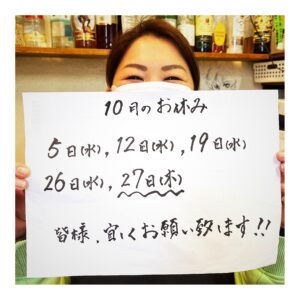 10月のお休み
5日(水), 12日(水), 19日(水)
26日(水), 27日(木)
皆様、宜しくお願い致します!!